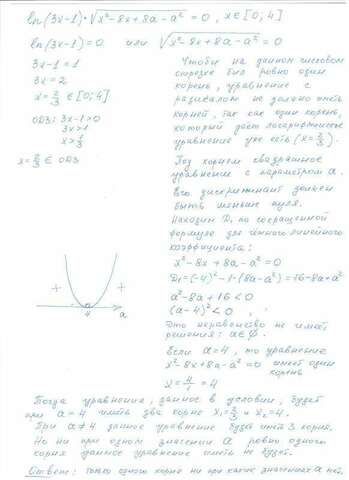 ln(3x-1)·√(x²-8x+8a-a²) = 0, x∈[0;4]
ln(3x-1)=0 или √(x²-8x+8a-a²) = 0
3x-1=1
3x=2
x=2/3 ∈ [0;4]
ОДЗ: 3x-1>0
3x>1
x>1/3
x=2/3 ∈ ОДЗ
Чтобы на данном числовом
отрезке был ровно один
корень, уравнение с
радикалом не должно иметь
корней, так как один корень,
который даёт логарифмическое
уравнение уже есть (x=2/3).
Под корнем квадратное
уравнение с параметром a.
Его дискриминант должен
быть меньше нуля.
Находим D₁ по сокращенной
формуле для чётного линейного
коэффициента:
x²-8x+8a-a²=0
D₁=(-4)²-1·(8a-a²)=16-8a+a²
a²-8a+16<0
(a-4)²<0
Это неравенство не имеет
решения: a∈∅.
Если a=4, то уравнение
x²-8x+8a-a²=0 имеет один
корень
x=4/1=4
+ +
4 a
Тогда уравнение, данное в условии, будет
при a=4 иметь два корня x₁=2/3 и x₂=4.
При a≠4 данное уравнение будет иметь 3 корня.
Но ни при одном значении a ровно одного
корня данное уравнение иметь не будет.
Ответ: только одного корня ни при каких значениях a нет.